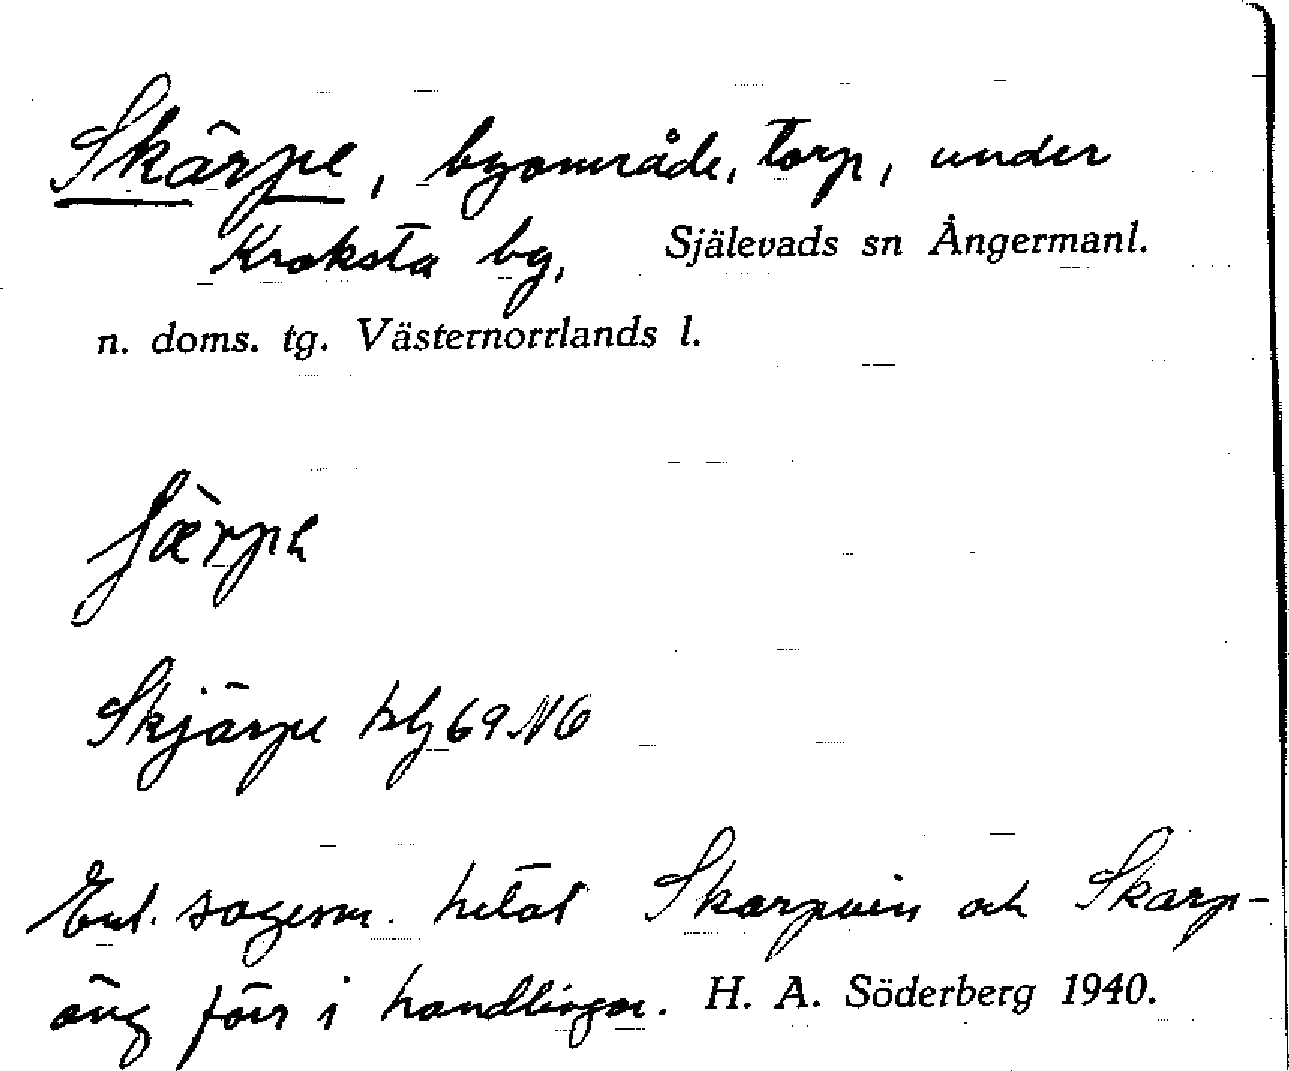 Skärpe, byområde, torp, under
Kroksta by, Själevads sn Ångermanl.
n. doms. tg. Västernorrlands l.
ʃæ̀rpe
Skjärpe kbl 69 NO
Enl. sagesm. hetat Skarpvin och Skarp-
äng förr i handlingar. H. A. Söderberg 1940.